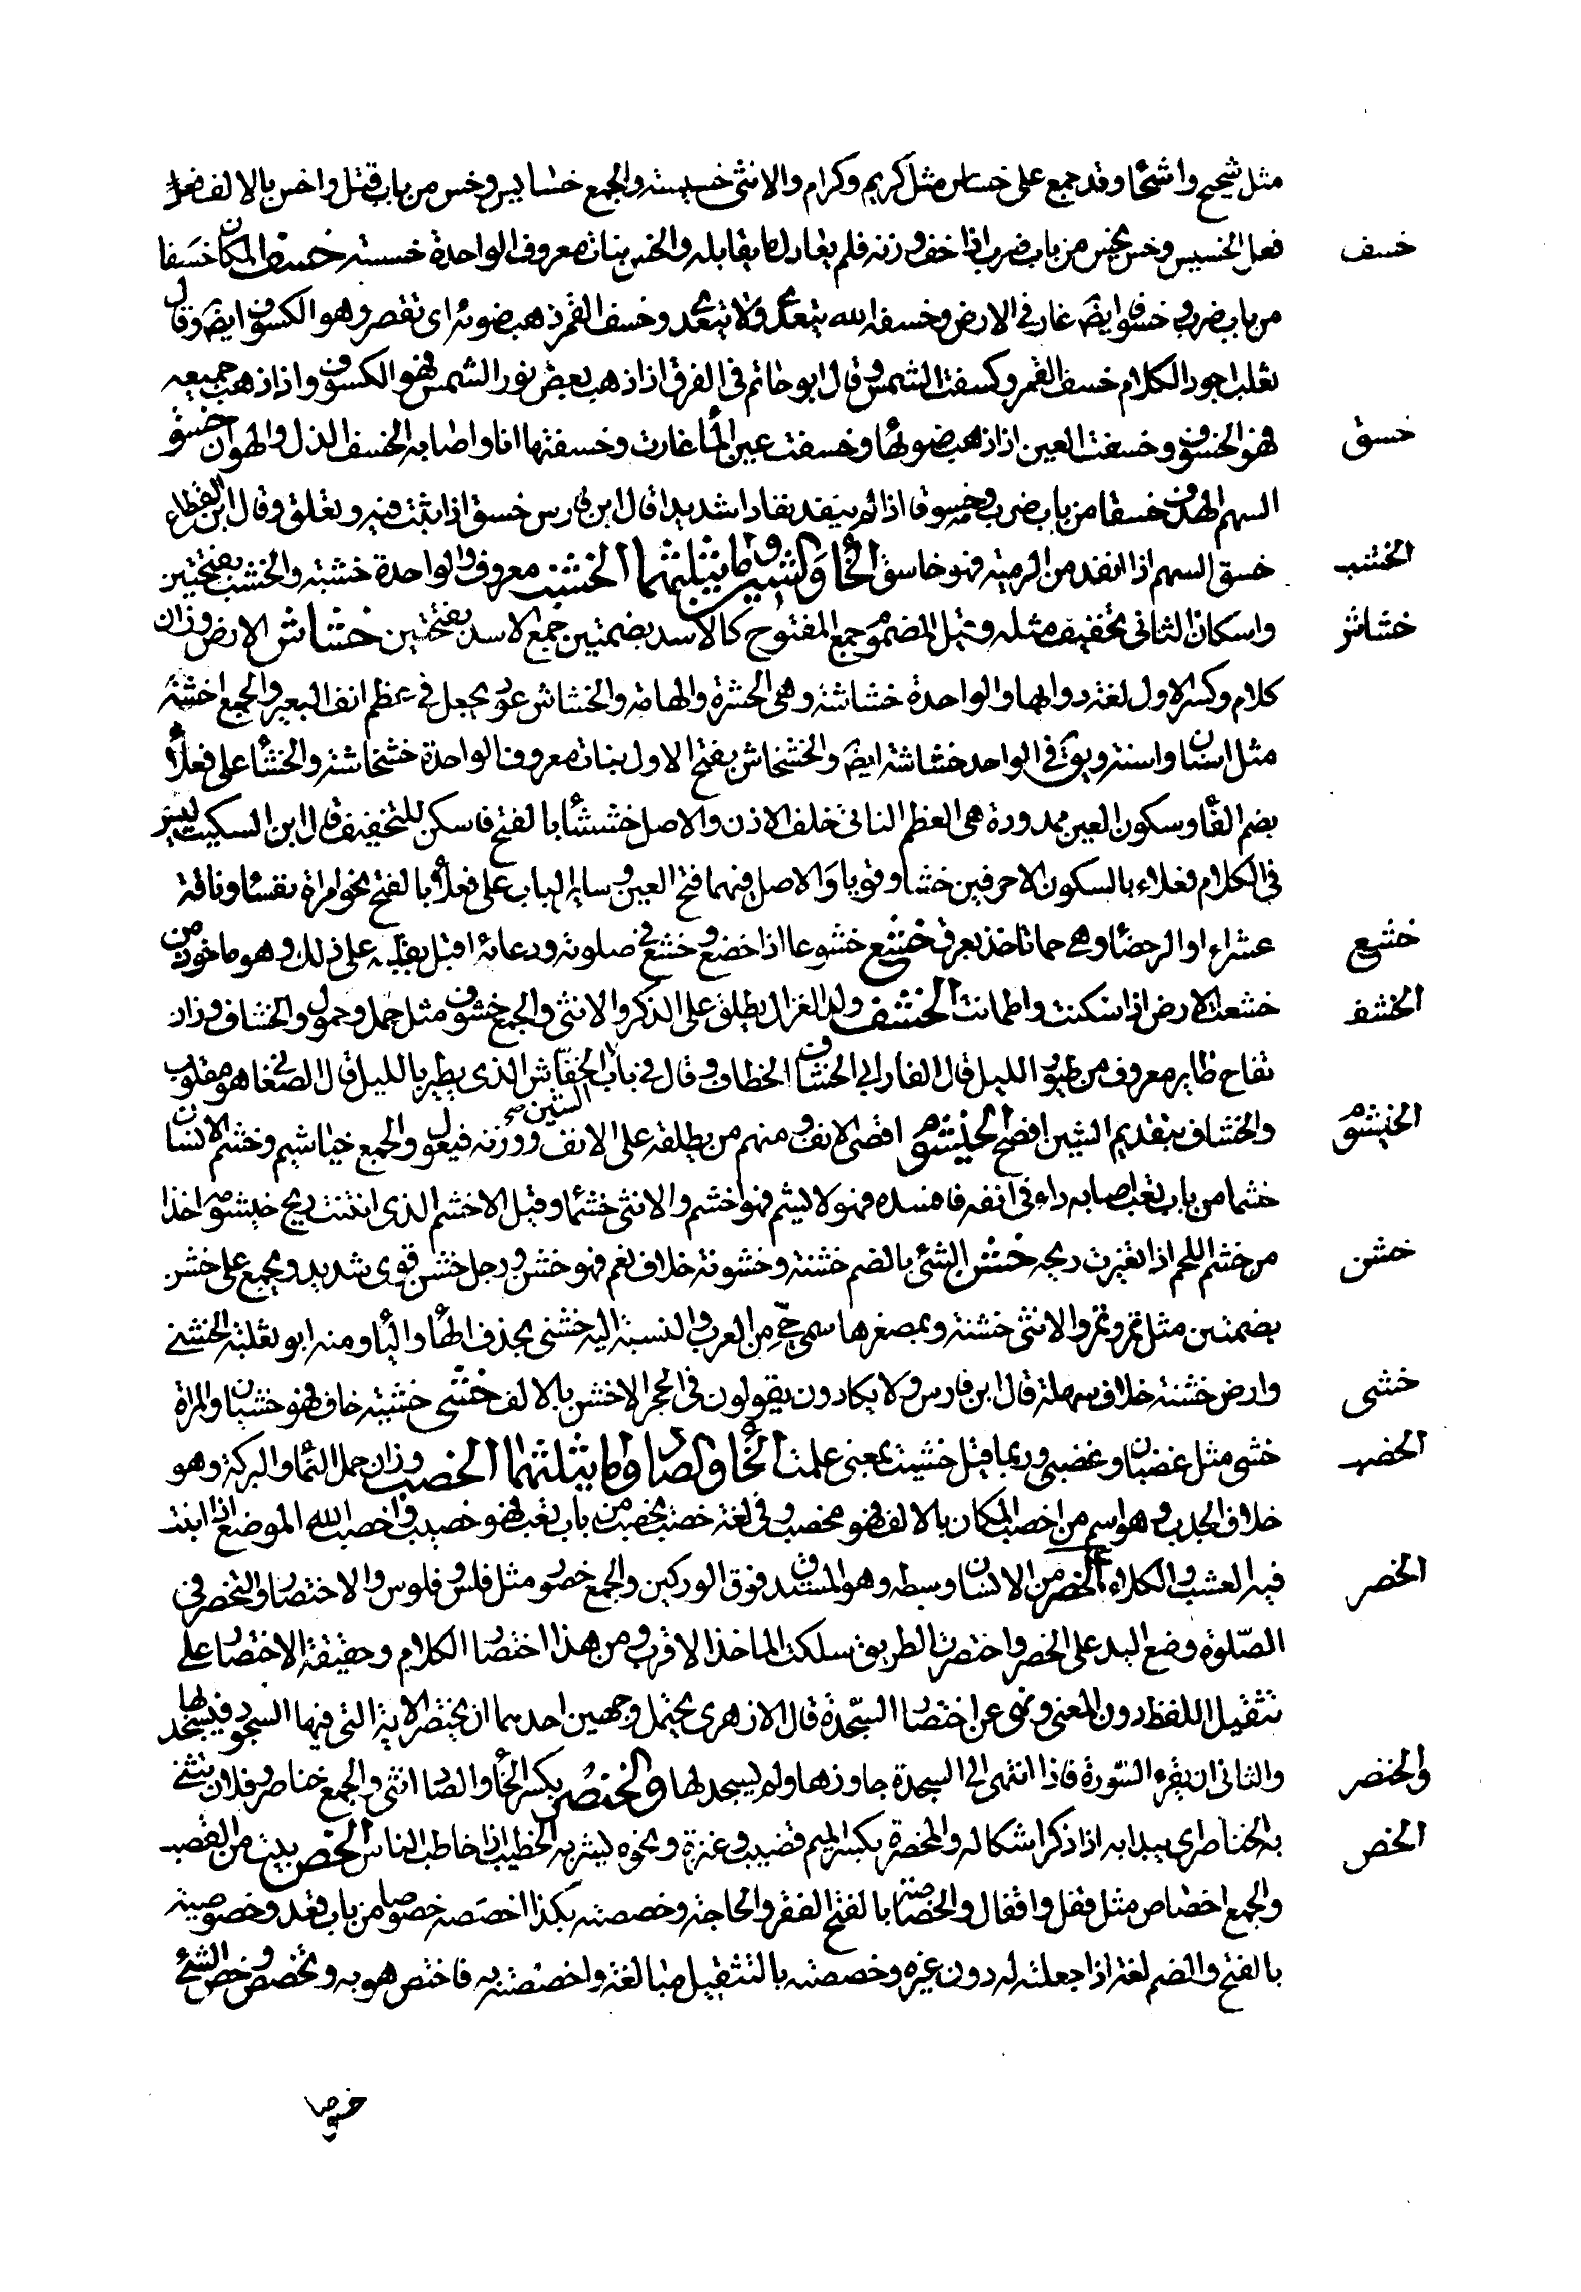 مثل شحيح واشحا وقد جمع على خساس مثل كريم وكرام والانثى خسيسة والجمع خسايس وخس من باب قتل واخس بالالف فعل
خسف
فعل الخسيس وخس يخس من باب ضرب اذا خف وزنه فلم يعادل ما يقابله والخس نبات معروف الواحدة خسسته خسف المكان خسفا
من باب ضرب وخسوفا ايضا غار فى الارض وخسفه الله يتعدى ولا يتعدى وخسف القمر ذهب ضوئه اى نقص وهو الكسوف ايضا وقال
ثعلب اجود الكلام خسف القمر وكسفت الشمس وقال ابو حاتم فى الفرق اذا ذهب بعض نور الشمس فهو الكسوف واذا ذهب جميعه
خسق
فهو الخسوف وخسفت العين اذا ذهب ضوئها وخسفت عين الما غارت وخسفتها انا واصابه الخسف الذل والهوان خسق
السهم الهدف خسقا من باب ضرب وخسوقا اذا لم ينفد نفاذا شديدا قال ابن فارس خسق اذا ثبت فيه وتعلق وقال ابن القطاع
الخشب
خسق السهم اذا انفد من الرمية فهو خاسق الخا والشين وما يثلثهما الخشب معروف الواحدة خشبة والخشب بفتحتين
خشاش
واسكان الثانى تخفيف مثله وقيل المضموم جمع المفتوح كالاسد بضمتين جمع الاسد بفتحتين خشاش الارض وزان
كلام وكسر الاول لغة دوابها والواحدة خشاشة وهى الحشرة والهامة والخشاش عود يجعل فى عظم انف البعير والجمع اخشة
مثل اسنان واسنة ويق فى الواحد خشاشة ايضا والخشخاش بفتح الاول نبات معروف الواحدة خشخاشة والخشا على فعلا
بضم الفا وسكون العين ممدودة هى العظم الناتى خلف الاذن والاصل خششا بالفتح فاسكن للتخفيف قال ابن السكيت ليس
فى الكلام فعلاء بالسكون الاحرفين خشا وقوبا والاصل فيهما فتح العين وساير الباب على فعلا بالفتح نحو امراة نفسا وناقة
خشع
عشراء او الرحضا وهى حما تاخذ بعرق خشع خشوعا اذا خضع وخشع فى صلوته ودعائه اقبل بقلبه على ذلك وهو ماخوذ من
الخشف
خشعت الارض اذا سكنت واطمانت الخشف ولد الغزال يطلق على الذكر والانثى والجمع خشوف مثل حمل وحمول والخشاف وزان
تفاح طاير معروف من طيور الليل قال الفارابى الخشاف الخطاف وقال فى باب الشين الخفاش الذى يطير بالليل قال الصغانى هو مقلوب
الخيشوم
والخشاف بتقديم الشين افصح الخيشوم اقصى الانف ومنهم من يطلقه على الانف ووزنه فيعول والجمع خياشيم وخشم الانسان
خشما من باب تعب اصابه داء فى انفه فافسده فهو لا يشم فهو اخشم والانثى خشما وقيل الاخشم الذى انتنت ريح خيشومه اخذا
خشن
من خشم اللحم اذا تغيرت ريحه خشن الشئ بالضم خشنة وخشونة خلاف نعم فهو خشن ورجل خشن قوى شديد ويجمع على خشن
بضمتين مثل نمر ونمر والانثى خشنة وبمصغرها سمى حى من العرب والنسبة اليه خشنى بحذف الها واليا ومنه ابو ثعلبة الخشنى
خشى
وارض خشنة خلاف سهلة قال ابن فارس ولا يكادون يقولون فى الحجر الا اخشن بالالف خشى خشية خاف فهو خشيان والمراة
الخصب
خشى مثل غضبان وغضبى وربما قيل خشيت بمعنى علمت الخا والصاد وما يثلثهما الخصب وزان حمل النما والبركة وهو
خلاف الجدب وهو اسم من اخصب المكان بالالف فهو مخصب وفى لغة خصب يخصب من باب تعب فهو خصيب واخصب الله الموضع اذا انبت
الخصر
فيه العشب والكلاء الخصر من الانسان وسطه وهو المستدق فوق الوركين والجمع خصور مثل فلس وفلوس والاختصار والتخصر فى
الصلوة وضع اليد على الخصر واختصرت الطريق سلكت الماخذ الاقرب ومن هذا اختصار الكلام وحقيقة الاختصار على
تثقيل اللفظ دون المعنى ونهى عن اختصار السجدة قال الازهرى يحتمل وجهين احدهما ان يختصر الاية التى فيها السجود فيسجد بها
والخنصر
والثانى ان يقرء السورة فاذا انتهى الى السجدة جاوزها ولم يسجد لها والخنصر بكسر الخا والصاد انثى والجمع خناصر وفلان تثنى
الخص
به الخناصر اى يبدا به اذا ذكر اشكاله والمخصرة بكسر الميم قضيب وعنزة ونحوه يشير به الخطيب اذا خاطب الناس الخص بيت من القصب
والجمع اخصاص مثل قفل واقفال والخصاصة بالفتح الفقر والحاجة وخصصته بكذا اخصصه خصوصا من باب قعد وخصوصية
بالفتح والضم لغة اذا جعلته له دون غيره وخصصته بالتثقيل مبالغة واختصصته به فاختص هو به وتخصص وخص الشئ
خصوصا